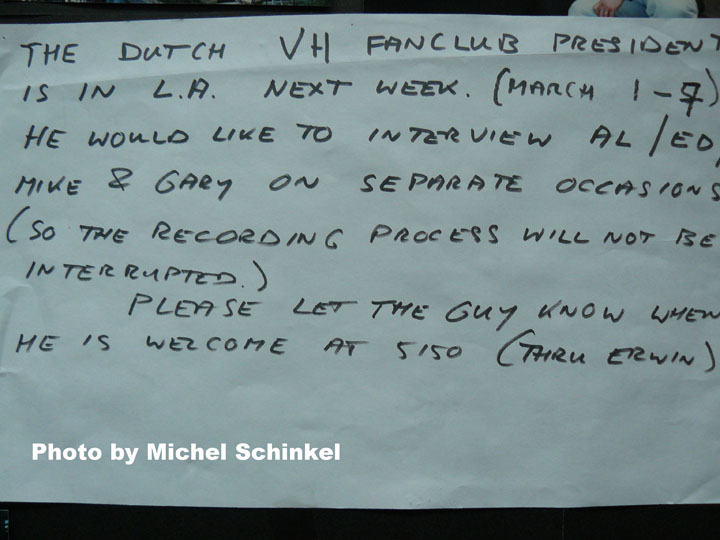 THE DUTCH VH FANCLUB PRESIDENT
IS IN L.A. NEXT WEEK. (MARCH 1-7)
HE WOULD LIKE TO INTERVIEW AL/ED,
MIKE & GARY ON SEPARATE OCCASIONS
(SO THE RECORDING PROCESS WILL NOT BE
INTERRUPTED.)
PLEASE LET THE GUY KNOW WHEN
HE IS WELCOME AT 5150 (THRU ERWIN)
Photo by Michel Schinkel